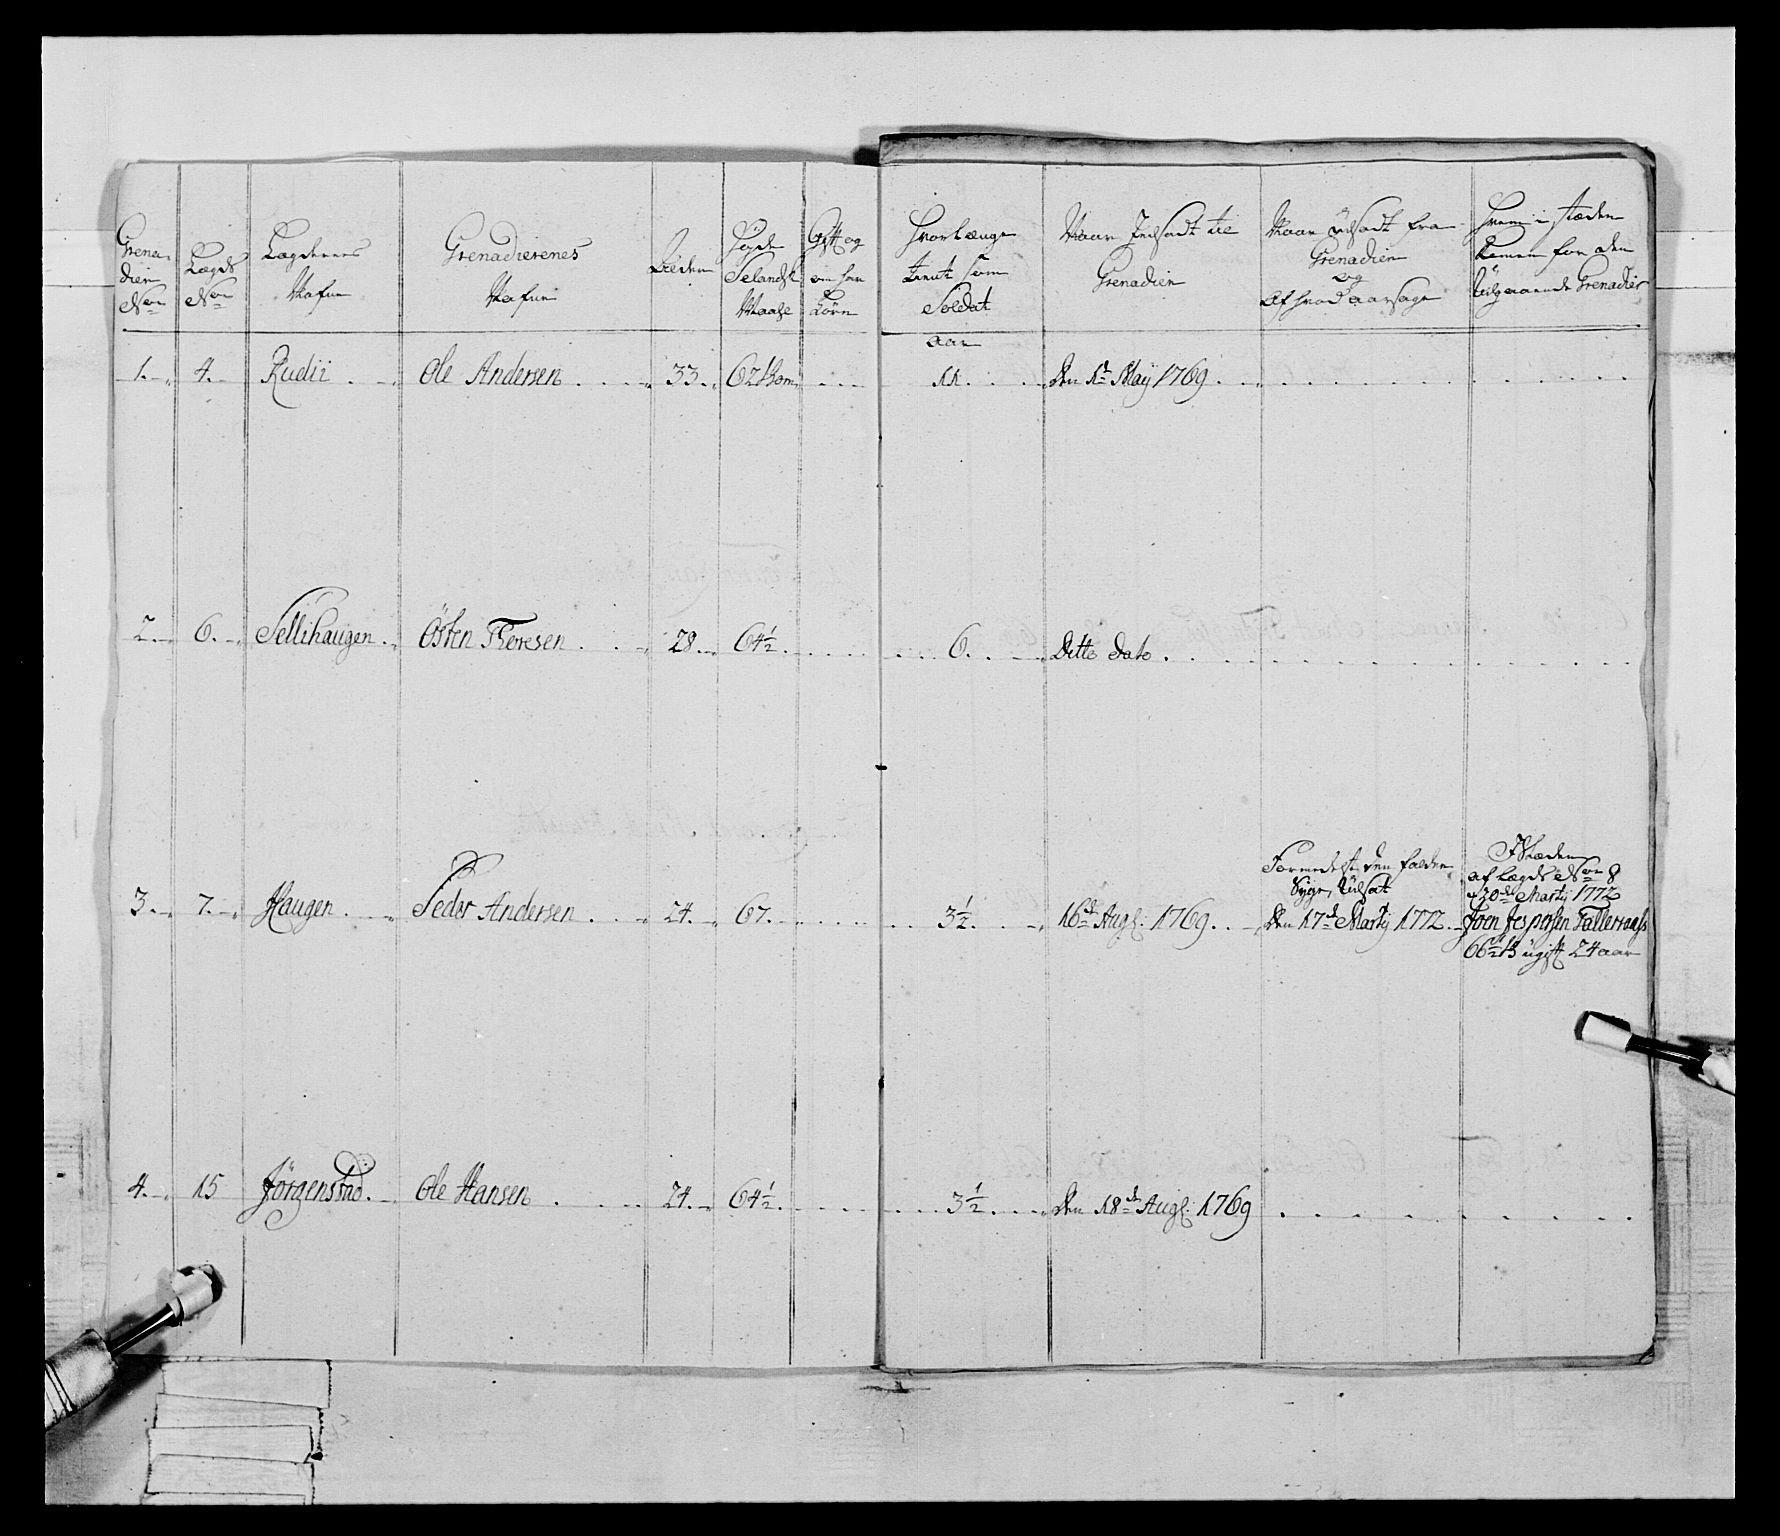 Grena-
dier
No
Lægds
No
Lægdernes
Nafne
Grenadierenes
Nafne
Alder
Høyde
Selandsk
Maal
Gift og
om han
Børn
Hvor længe
tient som
Soldat
aar
Naar Indsadt til
Grenadier
Naar udsadt fra
Grenadier
og
af hvad aarsage
Hvem i stæden
kommen for den
udgaaende Grenadier
1. 4. Rudii Ole Andersen 33. 62 11. Den 1te Maij 1769.
2. 6. Sellihaugen Østen Thoresen 28. 64½. 6. Ditto Dato
3. 7. Haugen Peder Andersen 24. 67. 3½. 16de Augl: 1769.
Formedelst den falden
Syge, Udsat
Den 17de Martij 1772.
I Stæden
af Lægds No 8
d 30de Martij 1772
Joen Jespersen
66½ ugift 24 aar
4. 15 Jörgenstad Ole Hansen 24. 64½. 3½. Den 18de Augl: 1769